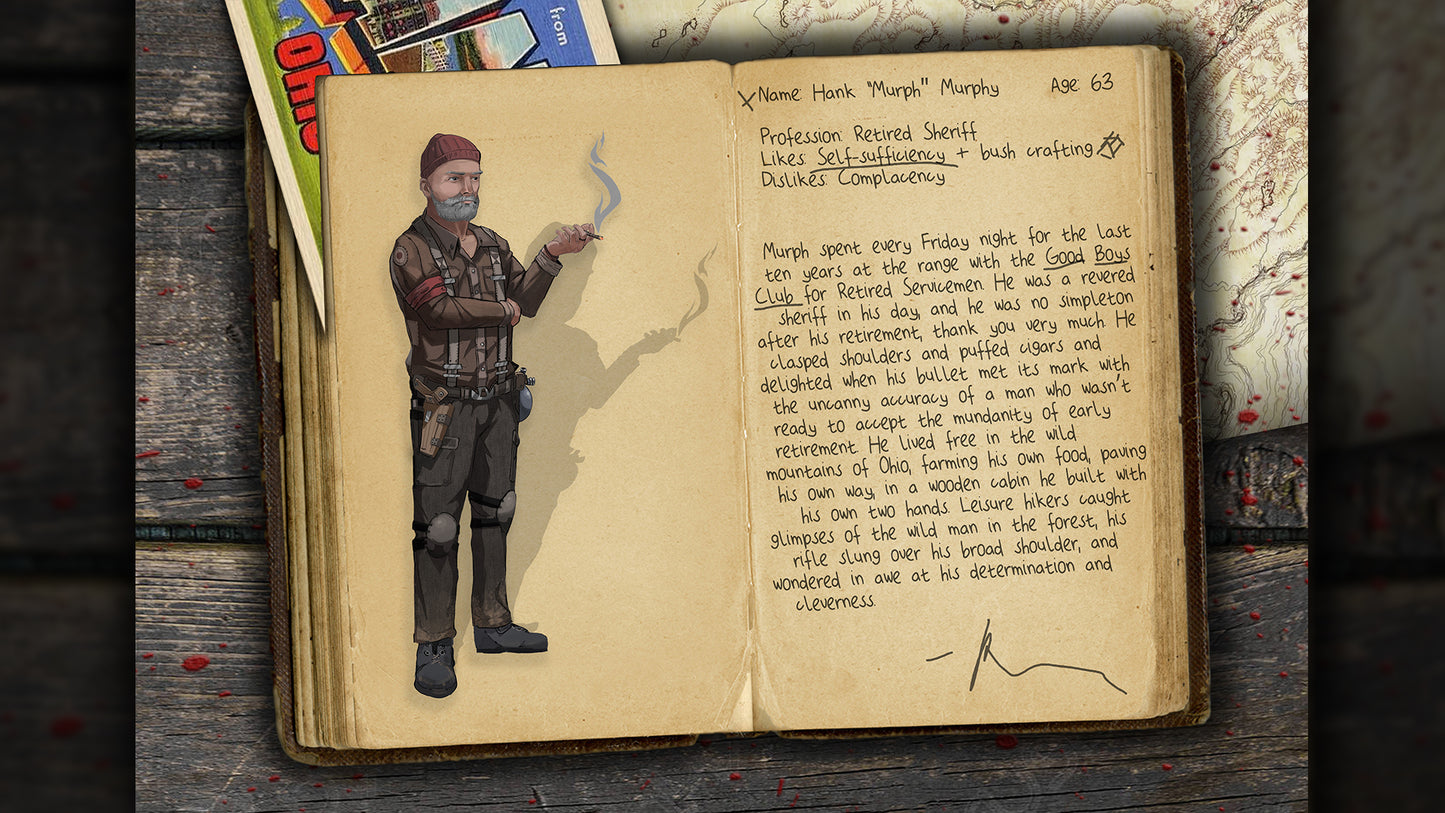 from
OHIO
Name: Hank "Murph" Murphy Age: 63
Profession: Retired Sheriff
Likes: Self-sufficiency + bush crafting
Dislikes: Complacency
Murph spent every Friday night for the last
ten years at the range with the Good Boys
Club for Retired Servicemen. He was a revered
sheriff in his day, and he was no simpleton
after his retirement, thank you very much. He
clasped shoulders and puffed cigars and
delighted when his bullet met its mark with
the uncanny accuracy of a man who wasn't
ready to accept the mundanity of early
retirement. He lived free in the wild
mountains of Ohio, farming his own food, paving
his own way, in a wooden cabin he built with
his own two hands. Leisure hikers caught
glimpses of the wild man in the forest, his
rifle slung over his broad shoulder, and
wondered in awe at his determination and
cleverness.